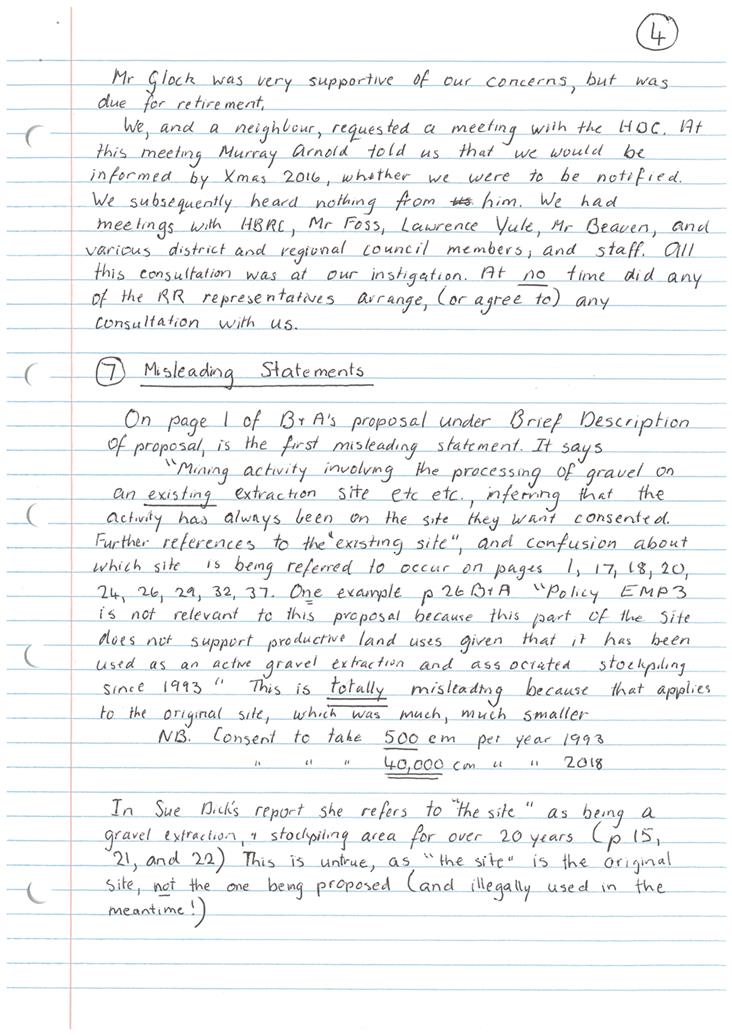 4
Mr Glock was very supportive of our concerns, but was
due for retirement.
We, and a neighbour, requested a meeting with the HDC. At
this meeting Murray Arnold told us that we would be
informed by Xmas 2016, whether we were to be notified.
We subsequently heard nothing from him. We had
meetings with HBRC, Mr Foss, Lawrence Yule, Mr Beaven, and
various district and regional council members, and staff. All
this consultation was at our instigation. At no time did any
of the RR representatives arrange, (or agree to) any
consultation with us.
7 Misleading Statements
On page 1 of B+A's proposal under Brief Description
of proposal, is the first misleading statement. It says
"Mining activity involving the processing of gravel on
an existing extraction site etc etc., inferring that the
activity has always been on the site they want consented.
Further references to the "existing site", and confusion about
which site is being referred to occur on pages 1, 17, 18, 20,
24, 26, 29, 32, 37. One example p 26 B+A "Policy EMP3
is not relevant to this proposal because this part of the site
does not support productive land uses given that it has been
used as an active gravel extraction and associated stockpiling
since 1993" This is totally misleading because that applies
to the original site, which was much, much smaller
NB. Consent to take 500 cm per year 1993
" " " 40,000 cm " " 2018
In Sue Dick's report she refers to "the site" as being a
gravel extraction, + stockpiling area for over 20 years (p 15,
21, and 22) This is untrue, as "the site" is the original
site, not the one being proposed (and illegally used in the
meantime!)